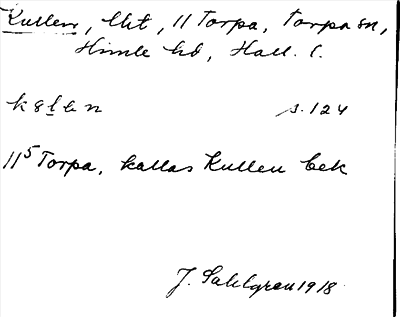 Kullen, lht, 11 Torpa, Torpa sn,
Himle hd, Hall. l.
s. 124
11⁵ Torpa, kallas Kullen bek
J. Sahlgren 1918